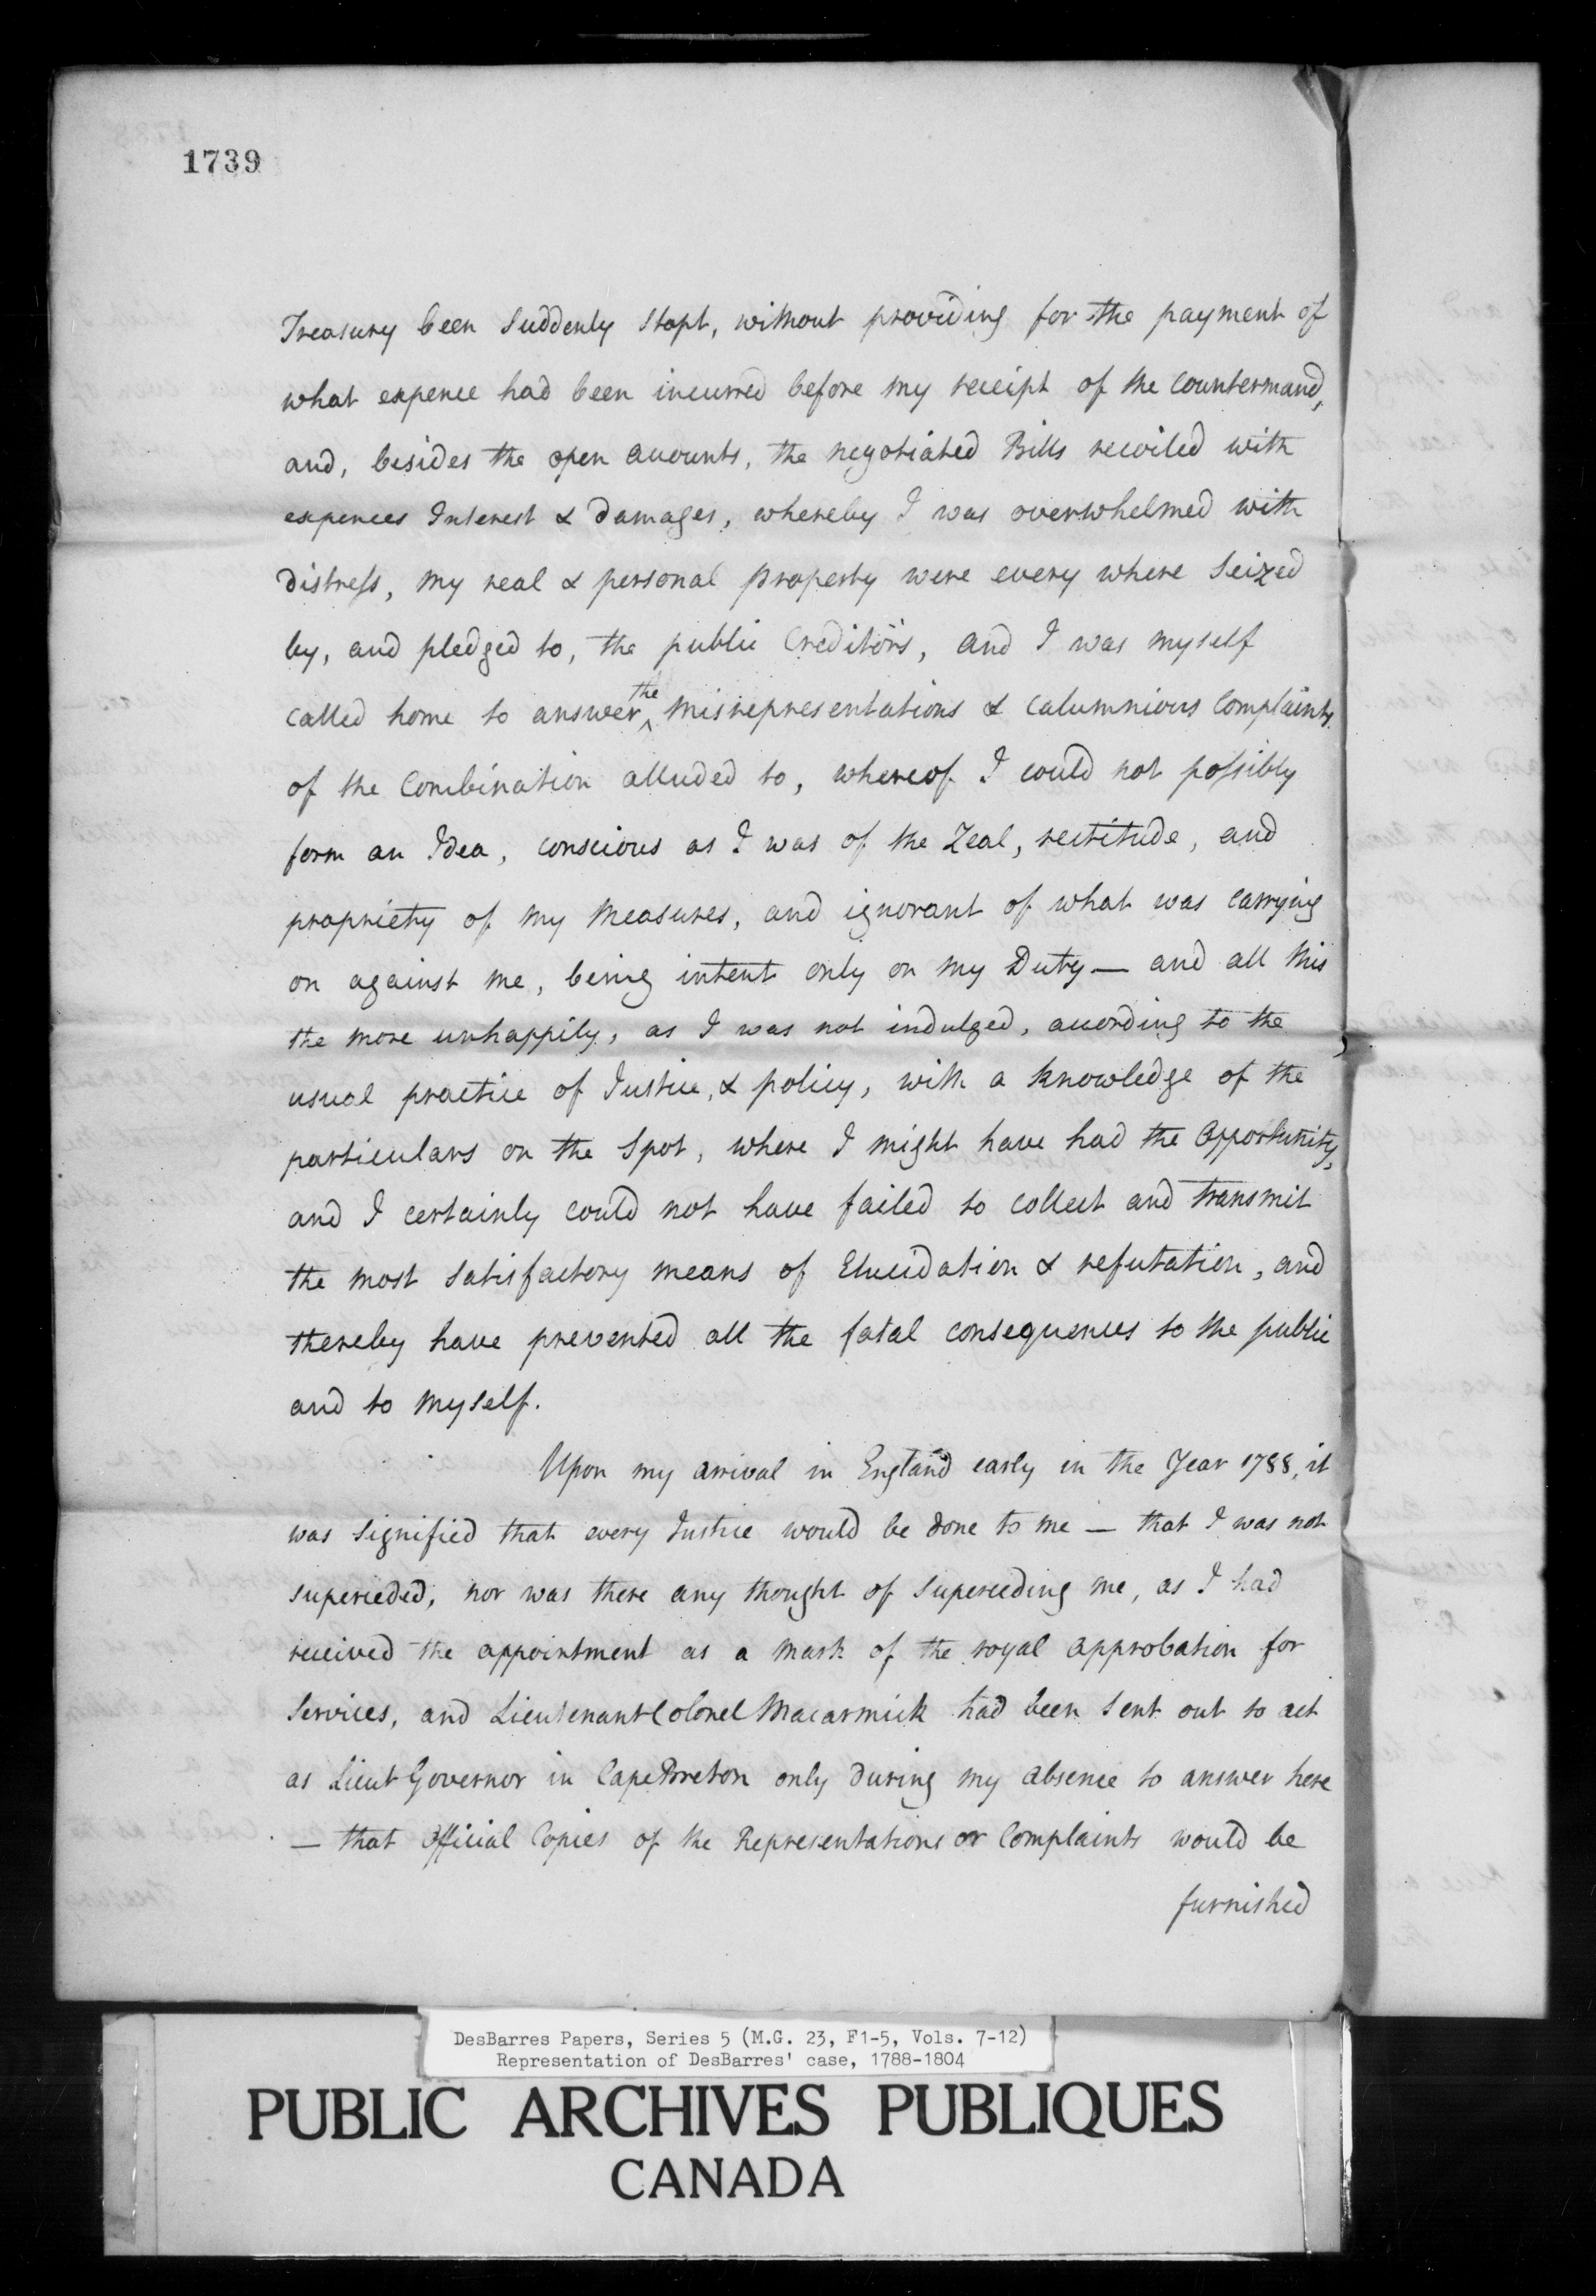 1739
Treasury been suddenly stopt, without providing for the payment of
what expence had been incurred before my receipt of the Countermand,
and, besides the open accounts, the negotiated Bills recoiled with
expences Interest & Damages, whereby I was overwhelmed with
Distress, my real & personal property were every where seized
by, and pledged to, the public Creditors, and I was myself
called home to answer the misrepresentations & calumnious Complaints
of the Combination alluded to, whereof I could not possibly
form an Idea, conscious as I was of the Zeal, rectitude, and
propriety of my measures, and ignorant of what was carrying
on against me, being intent only on my Duty — and all this
the more unhappily, as I was not indulged, according to the
usual practice of Justice, & policy, with a knowledge of the
particulars on the Spot, where I might have had the Opportunity,
and I certainly could not have failed to collect and transmit
the most satisfactory means of Elucidation & refutation, and
thereby have prevented all the fatal consequences to the public
and to myself.
Upon my arrival in England early in the Year 1788, it
was signified that every Justice would be done to me — that I was not
superceded, nor was there any thought of superceeding me, as I had
received the appointment as a mark of the royal approbation for
Services, and Lieutenant Colonel Macarmick had been sent out to act
as Lieut Governor in Cape Breton only during my absence to answer here
— that Official Copies of the Representations or Complaints would be
furnished
DesBarres Papers, Series 5 (M.G. 23, F1-5, Vols. 7-12)
Representation of DesBarres' case, 1788-1804
PUBLIC ARCHIVES PUBLIQUES
CANADA